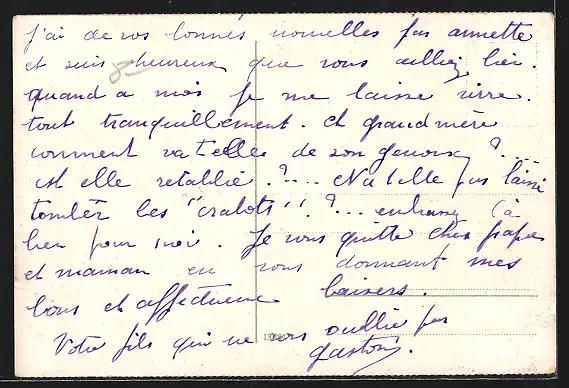 j'ai de vos bonnes nouvelles par annette
et suis heureux que vous alliez bien.
quand a moi je me laisse vivre.
tout tranquillement. et grand mère
comment va telle de son genoux ? ..
est elle retablie ? .... N'a telle pas laissé
tombér les "crabots" ! ? ... embrassez la
bien pour moi. Je vous quitte chers papa
et maman en vous donnant mes
bons et affectueux baisers.
Votre fils qui ne vous oublie pas
gaston